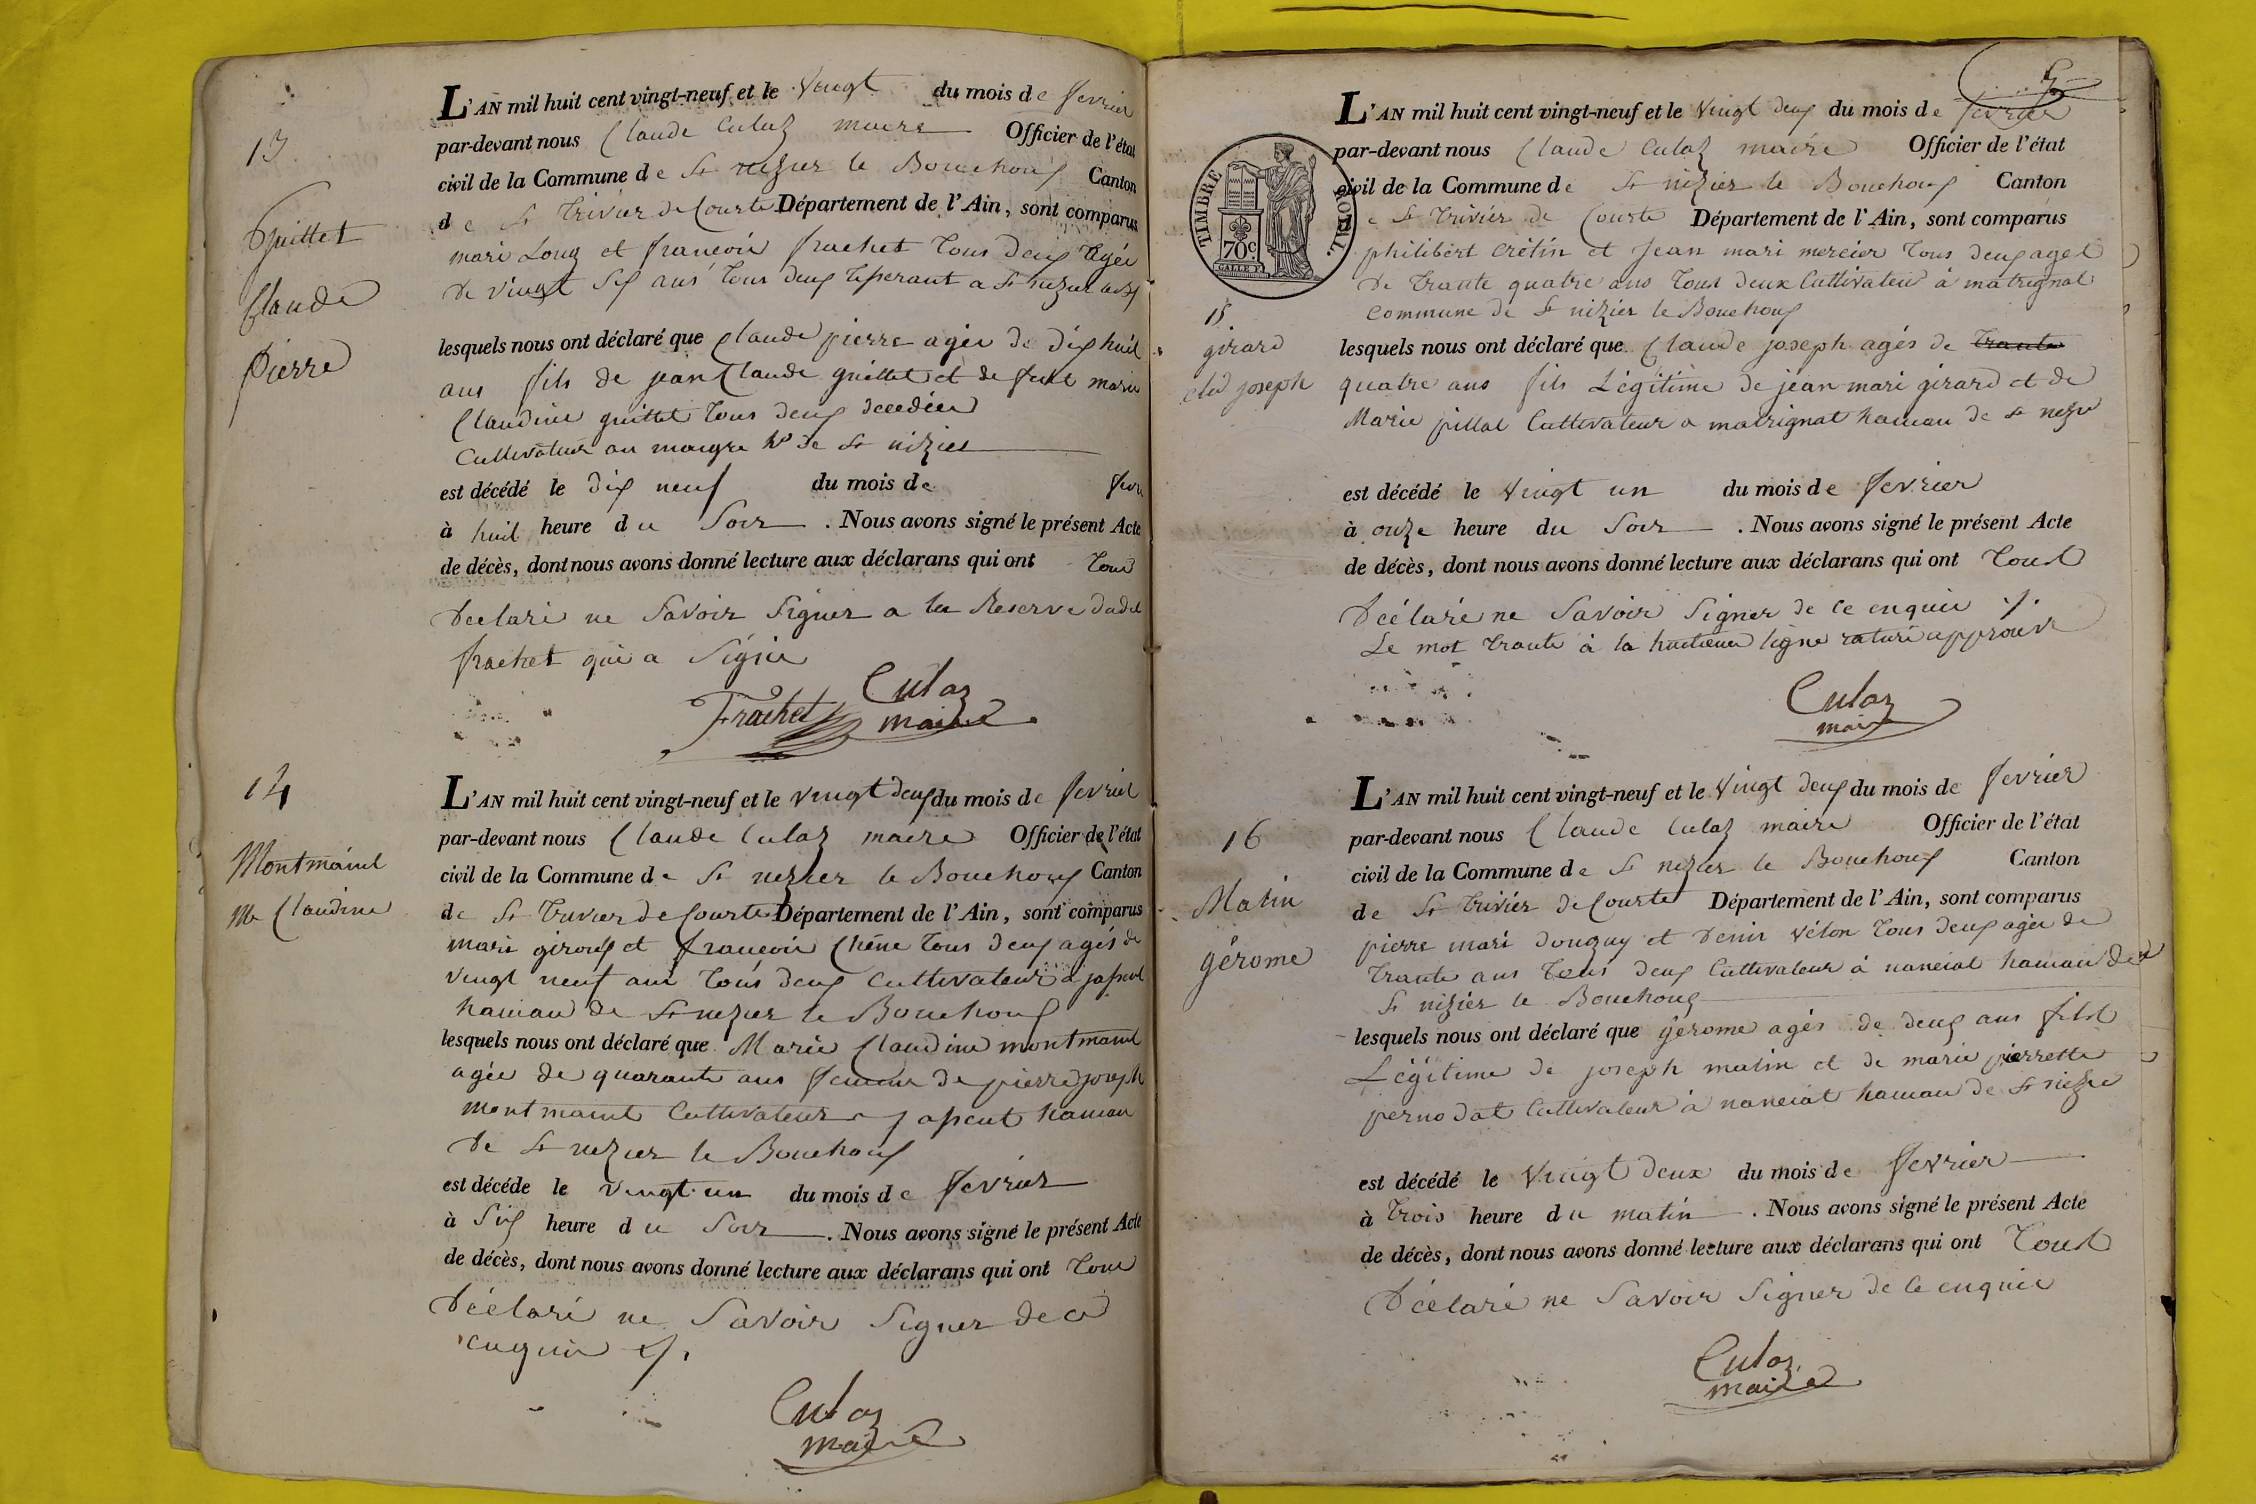 13
Guillet
Claude
Pierre
L'AN mil huit cent vingt-neuf et le vingt du mois de fevrier
par-devant nous Claude Culaz maire Officier de l'état
civil de la Commune de St nizier le Bouchoux Canton
de St trivier de Courtes Département de l'Ain, sont comparus
mari Long et francois frachet tous deux agés
de vingt six ans tous deux tisserant a St nizier
lesquels nous ont déclaré que Claude pierre agée de dix huit
ans fils de jean Claude guillet et de marie
Claudine guillet tous deux decedées
Cultivateur au maigre hau de St nizier
est décédé le dix neuf du mois de fevr
à huit heure du Soir. Nous avons signé le présent Acte
de décès, dont nous avons donné lecture aux déclarans qui ont tous
déclaré ne Savoir Signer a la Reserve dudit
frachet qui a Signé
Frachet
Culaz
maire
14
Montmaint
Me Claudine
L'AN mil huit cent vingt-neuf et le vingt deux du mois de fevrier
par-devant nous Claude Culaz maire Officier de l'état
civil de la Commune de St nizier le Bouchoux Canton
de St trivier de Courtes Département de l'Ain, sont comparus
mari giroux et francois Chêne tous deux agés de
vingt neuf ans tous deux Cultivateur a
hamau de St nizier le Bouchoux
lesquels nous ont déclaré que Marie Claudine montmaint
agée de quarante ans femme de pierre joseph
montmaint Cultivateur a hamau
de St nizier le Bouchoux
est décéde le vingt un du mois de fevrier
à Six heure du Soir. Nous avons signé le présent Acte
de décès, dont nous avons donné lecture aux déclarans qui ont tous
déclaré ne Savoir Signer de ce
enquis ./.
Culaz
maire
5
TIMBRE ROYAL.
70c
15
girard
clde joseph
L'AN mil huit cent vingt-neuf et le vingt deux du mois de fevrier
par-devant nous Claude Culaz maire Officier de l'état
civil de la Commune de St nizier le Bouchoux Canton
e St trivier de Courtes Département de l'Ain, sont comparus
philibert Crétin et jean mari mercier tous deux agés
de trante quatre ans tous deux Cultivateur à matrignat
commune de St nizier le Bouchoux
lesquels nous ont déclaré que Claude joseph agés de trante
quatre ans fils Légitime de jean mari girard et de
Marie pillat Cultivateur a matrignat hamau de St nizier
est décédé le vingt un du mois de fevrier
à onze heure du Soir. Nous avons signé le présent Acte
de décès, dont nous avons donné lecture aux déclarans qui ont tous
déclaré ne Savoir Signer de ce enquis ./.
Le mot trante à la huitieme ligne raturé approuvé
Culaz
maire
16
Matin
gérome
L'AN mil huit cent vingt-neuf et le vingt deux du mois de fevrier
par-devant nous Claude Culaz maire Officier de l'état
civil de la Commune de St nizier le Bouchoux Canton
de St trivier de Courtes Département de l'Ain, sont comparus
pierre mari donguy et denis vélon tous deux agés de
trante ans tous deux Cultivateur à nanciat hamau de
St nizier le Bouchoux
lesquels nous ont déclaré que gérome agés de deux ans fils
Légitime de joseph matin et de marie pierrette
pernodat Cultivateur à nanciat hamau de St nizier
est décédé le vingt deux du mois de fevrier
à trois heure du matin. Nous avons signé le présent Acte
de décès, dont nous avons donné lecture aux déclarans qui ont tous
déclaré ne Savoir Signer de ce enquis
Culaz
maire